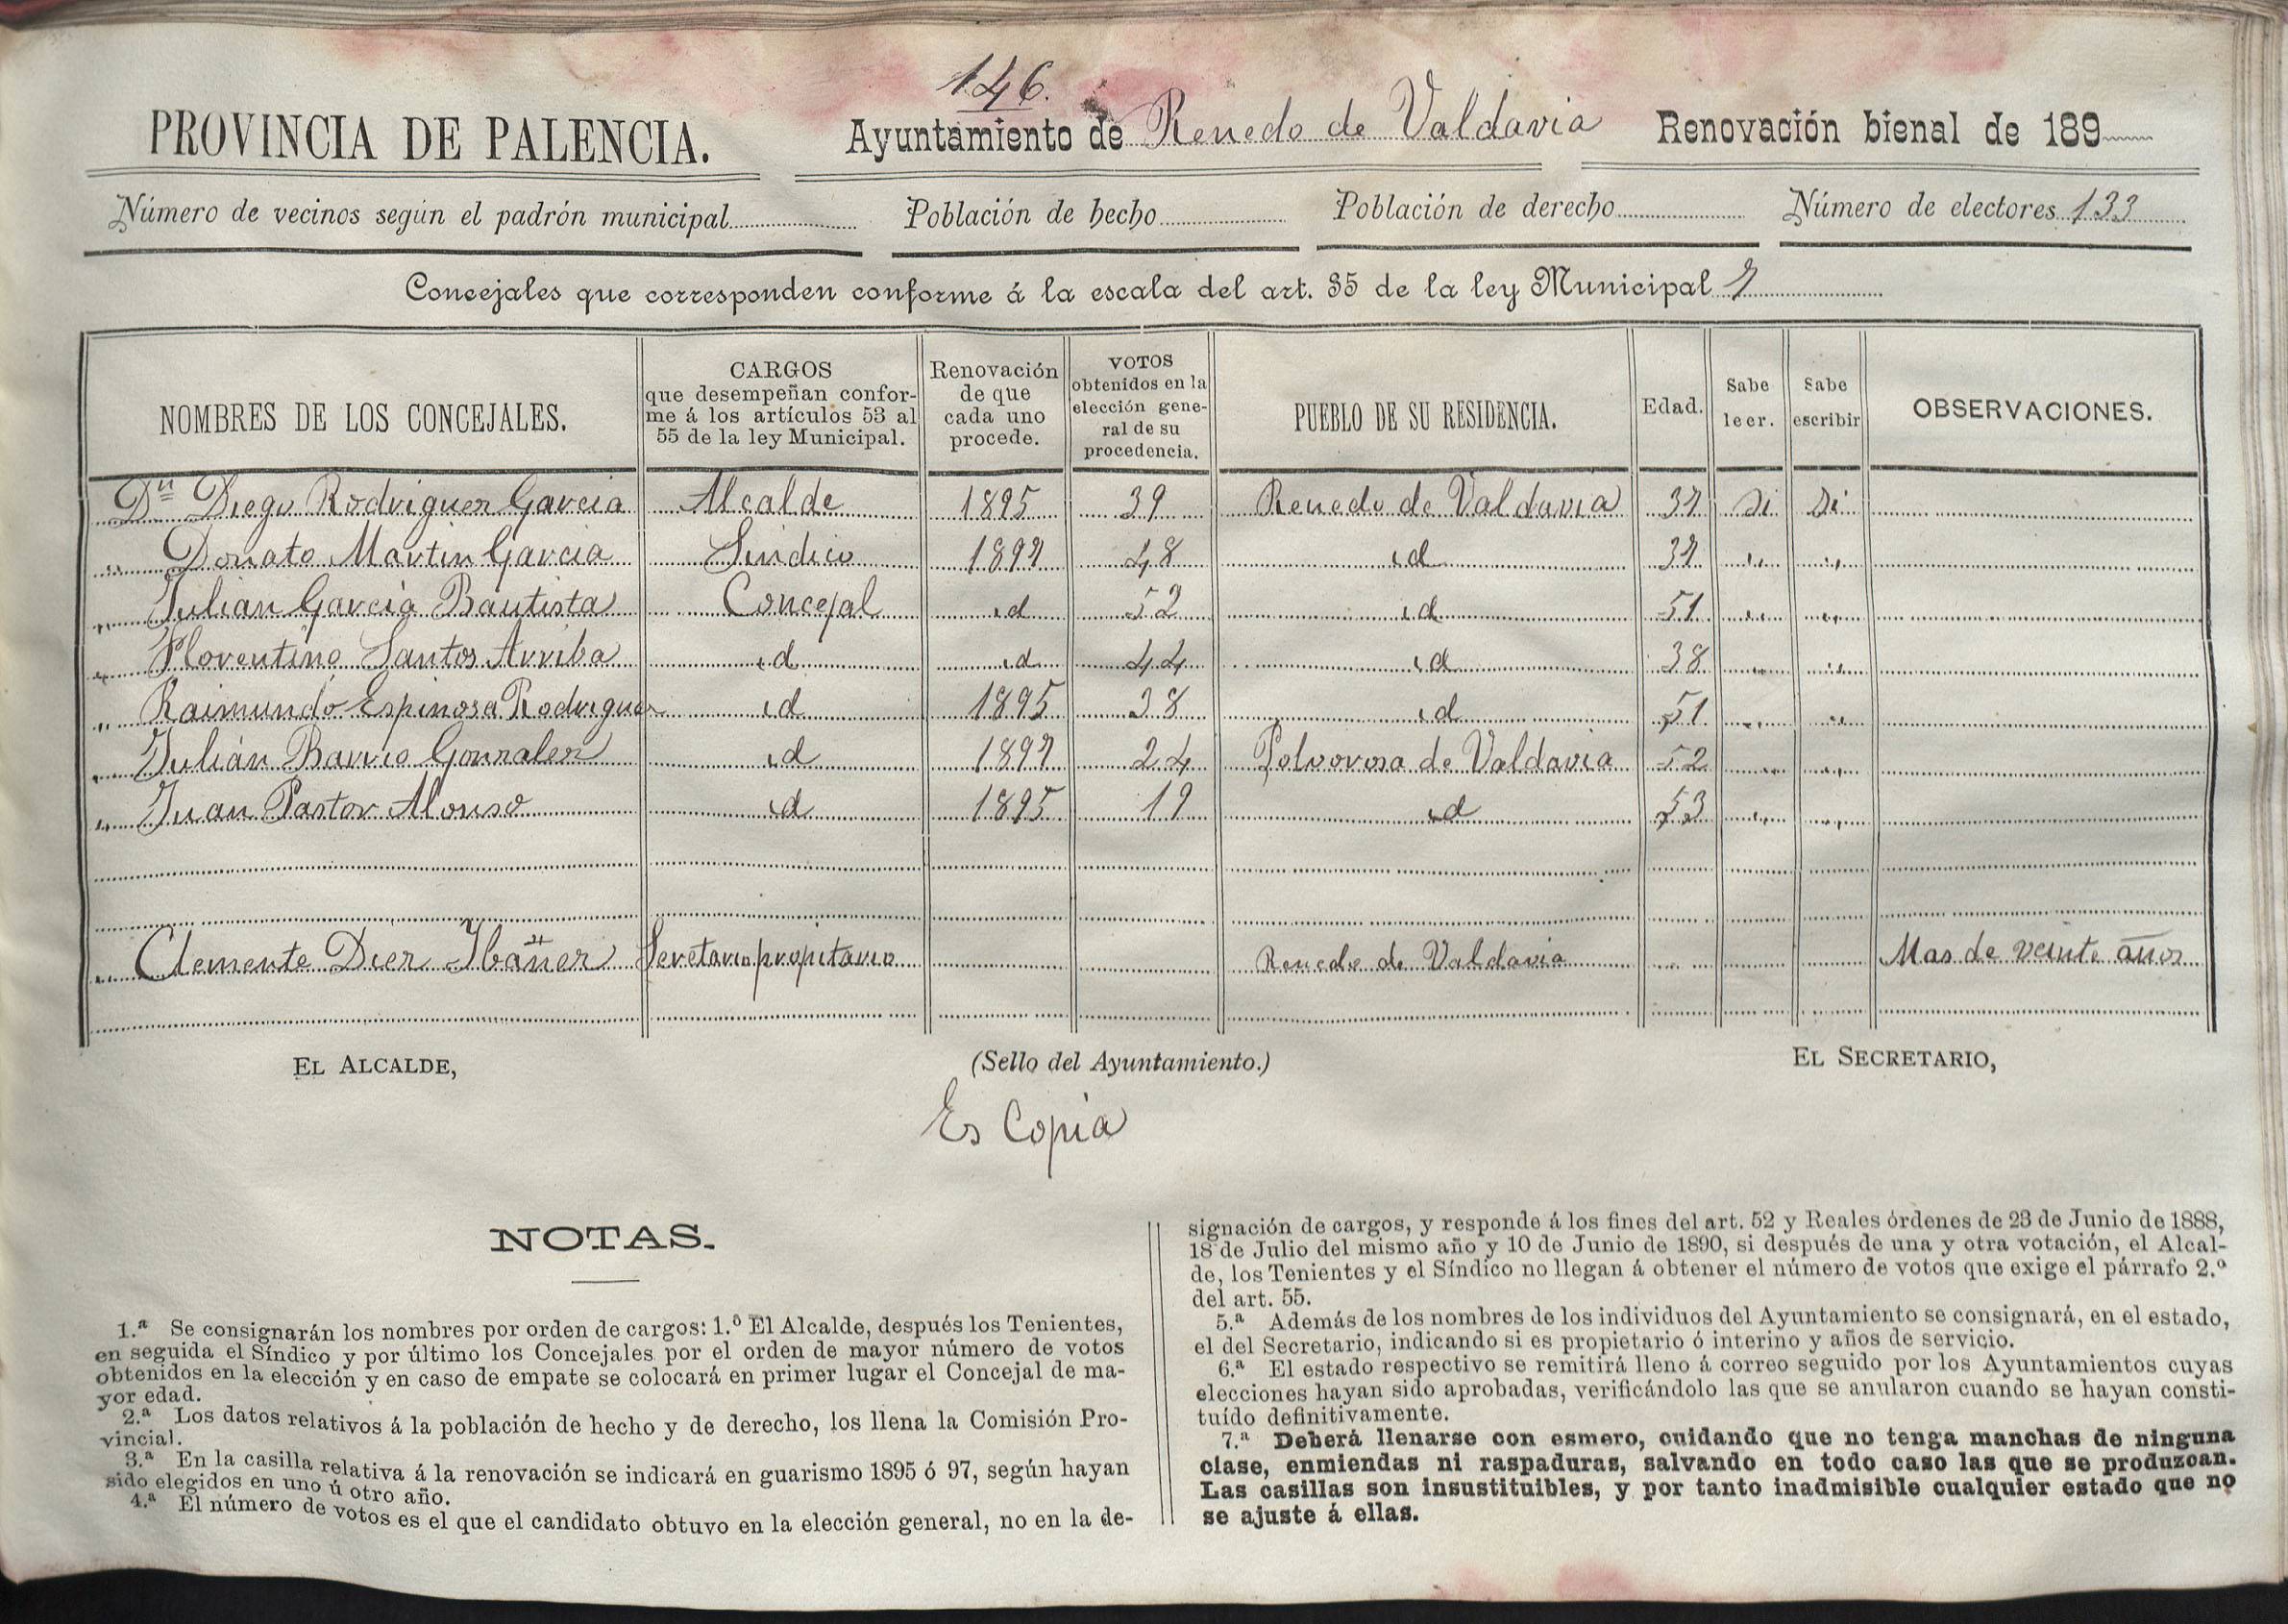 146.
PROVINCIA DE PALENCIA. Ayuntamiento de Renedo de Valdavia Renovación bienal de 189
Número de vecinos según el padrón municipal Población de hecho Población de derecho Número de electores 133
Concejales que corresponden conforme á la escala del art. 35 de la ley Municipal 7
NOMBRES DE LOS CONCEJALES. CARGOS que desempeñan conforme á los artículos 53 al 55 de la ley Municipal. Renovación de que cada uno procede. VOTOS obtenidos en la elección general de su procedencia. PUEBLO DE SU RESIDENCIA. Edad. Sabe leer. Sabe escribir OBSERVACIONES.
Dn Diego Rodriguez Garcia Alcalde 1895 39 Renedo de Valdavia 37 Si Si
„ Donato Martin Garcia Sindico 1897 48 id 37 „ „
„ Julian Garcia Bautista Concejal id 52 id 51 „ „
„ Florentino Santos Arriba id id 44 id 38 „ „
„ Raimundo Espinosa Rodriguez id 1895 38 id 51 „ „
„ Julián Barrio Gonzalez id 1897 24 Polvorosa de Valdavia 52 „ „
„ Juan Pastor Alonso id 1895 19 id 53 „ „
„ Clemente Diez Ibañez Secretario propietario Renedo de Valdavia „ Mas de veinte años
EL ALCALDE, (Sello del Ayuntamiento.) EL SECRETARIO,
Es Copia
NOTAS.
1.ª Se consignarán los nombres por orden de cargos: 1.º El Alcalde, después los Tenientes,
en seguida el Síndico y por último los Concejales por el orden de mayor número de votos
obtenidos en la elección y en caso de empate se colocará en primer lugar el Concejal de ma-
yor edad.
2.ª Los datos relativos á la población de hecho y de derecho, los llena la Comisión Pro-
vincial.
3.ª En la casilla relativa á la renovación se indicará en guarismo 1895 ó 97, según hayan
sido elegidos en uno ú otro año.
4.ª El número de votos es el que el candidato obtuvo en la elección general, no en la de-
signación de cargos, y responde á los fines del art. 52 y Reales órdenes de 23 de Junio de 1888,
18 de Julio del mismo año y 10 de Junio de 1890, si después de una y otra votación, el Alcal-
de, los Tenientes y el Síndico no llegan á obtener el número de votos que exige el párrafo 2.º
del art. 55.
5.ª Además de los nombres de los individuos del Ayuntamiento se consignará, en el estado,
el del Secretario, indicando si es propietario ó interino y años de servicio.
6.ª El estado respectivo se remitirá lleno á correo seguido por los Ayuntamientos cuyas
elecciones hayan sido aprobadas, verificándolo las que se anularon cuando se hayan consti-
tuído definitivamente.
7.ª Deberá llenarse con esmero, cuidando que no tenga manchas de ninguna
clase, enmiendas ni raspaduras, salvando en todo caso las que se produzcan.
Las casillas son insustituibles, y por tanto inadmisible cualquier estado que no
se ajuste á ellas.